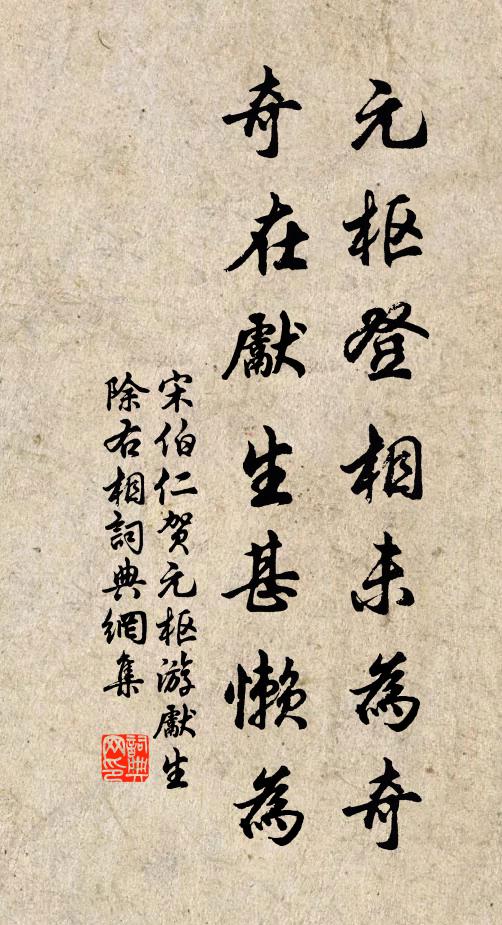 元枢登相未為奇
奇在獻生甚懒為
宋伯仁贺元枢游獻生
除右相詞典網集
詞典网印